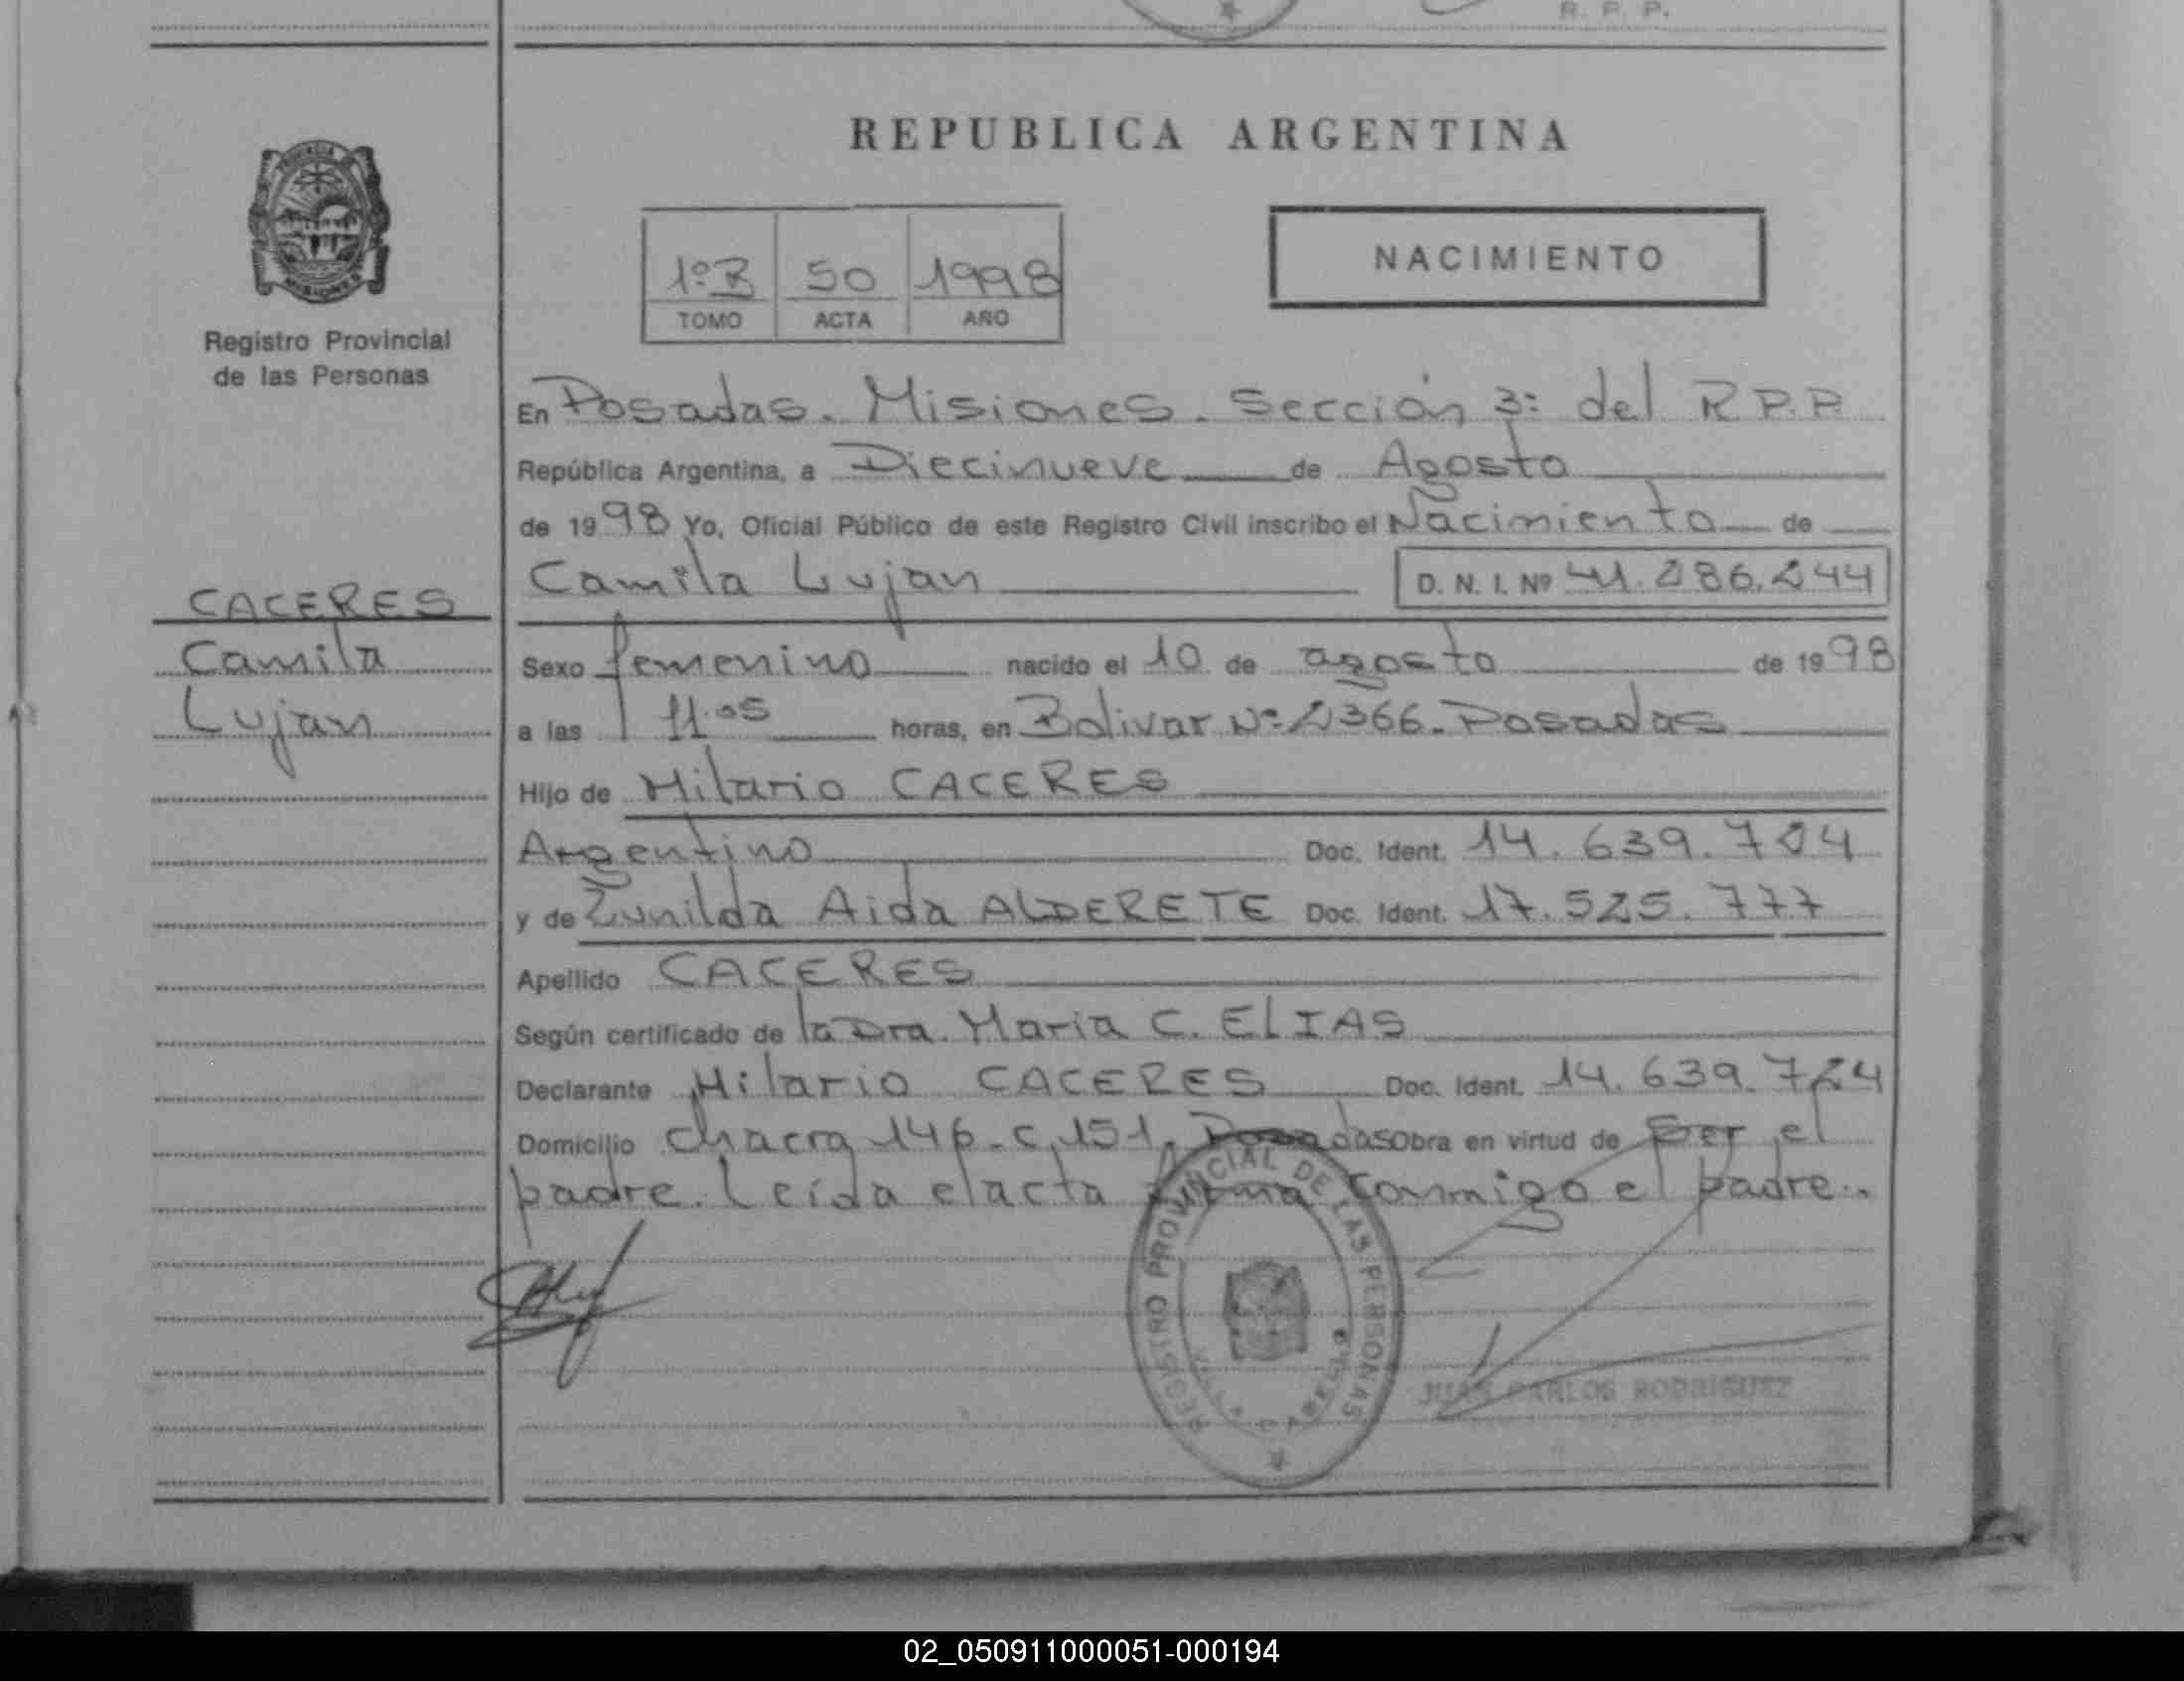 R. P. P.
REPUBLICA ARGENTINA
1º B 50 1998
TOMO ACTA AÑO
NACIMIENTO
Registro Provincial
de las Personas
En Posadas. Misiones. Sección 3: del R.P.P.
República Argentina, a Diecinueve de Agosto
de 1998 Yo, Oficial Público de este Registro Civil inscribo el Nacimiento de
Camila Lujan D. N. I. Nº 41.286.244
CACERES
Camila
Lujan
Sexo femenino nacido el 10 de agosto de 1998
a las 11.05 horas, en Bolivar Nº 2366. Posadas
Hijo de Hilario CACERES
Argentino Doc. Ident. 14.639.724
y de Zunilda Aida ALDERETE Doc. Ident. 17.525.777
Apellido CACERES
Según certificado de la Dra. Maria C. ELIAS
Declarante Hilario CACERES Doc. Ident. 14.639.724
Domicilio chacra 146 - C. 151. Posadas obra en virtud de ser el
padre. Leída el acta firma conmigo el padre..
REGISTRO PROVINCIAL DE LAS PERSONAS
JUAN CARLOS RODRIGUEZ
02_050911000051-000194